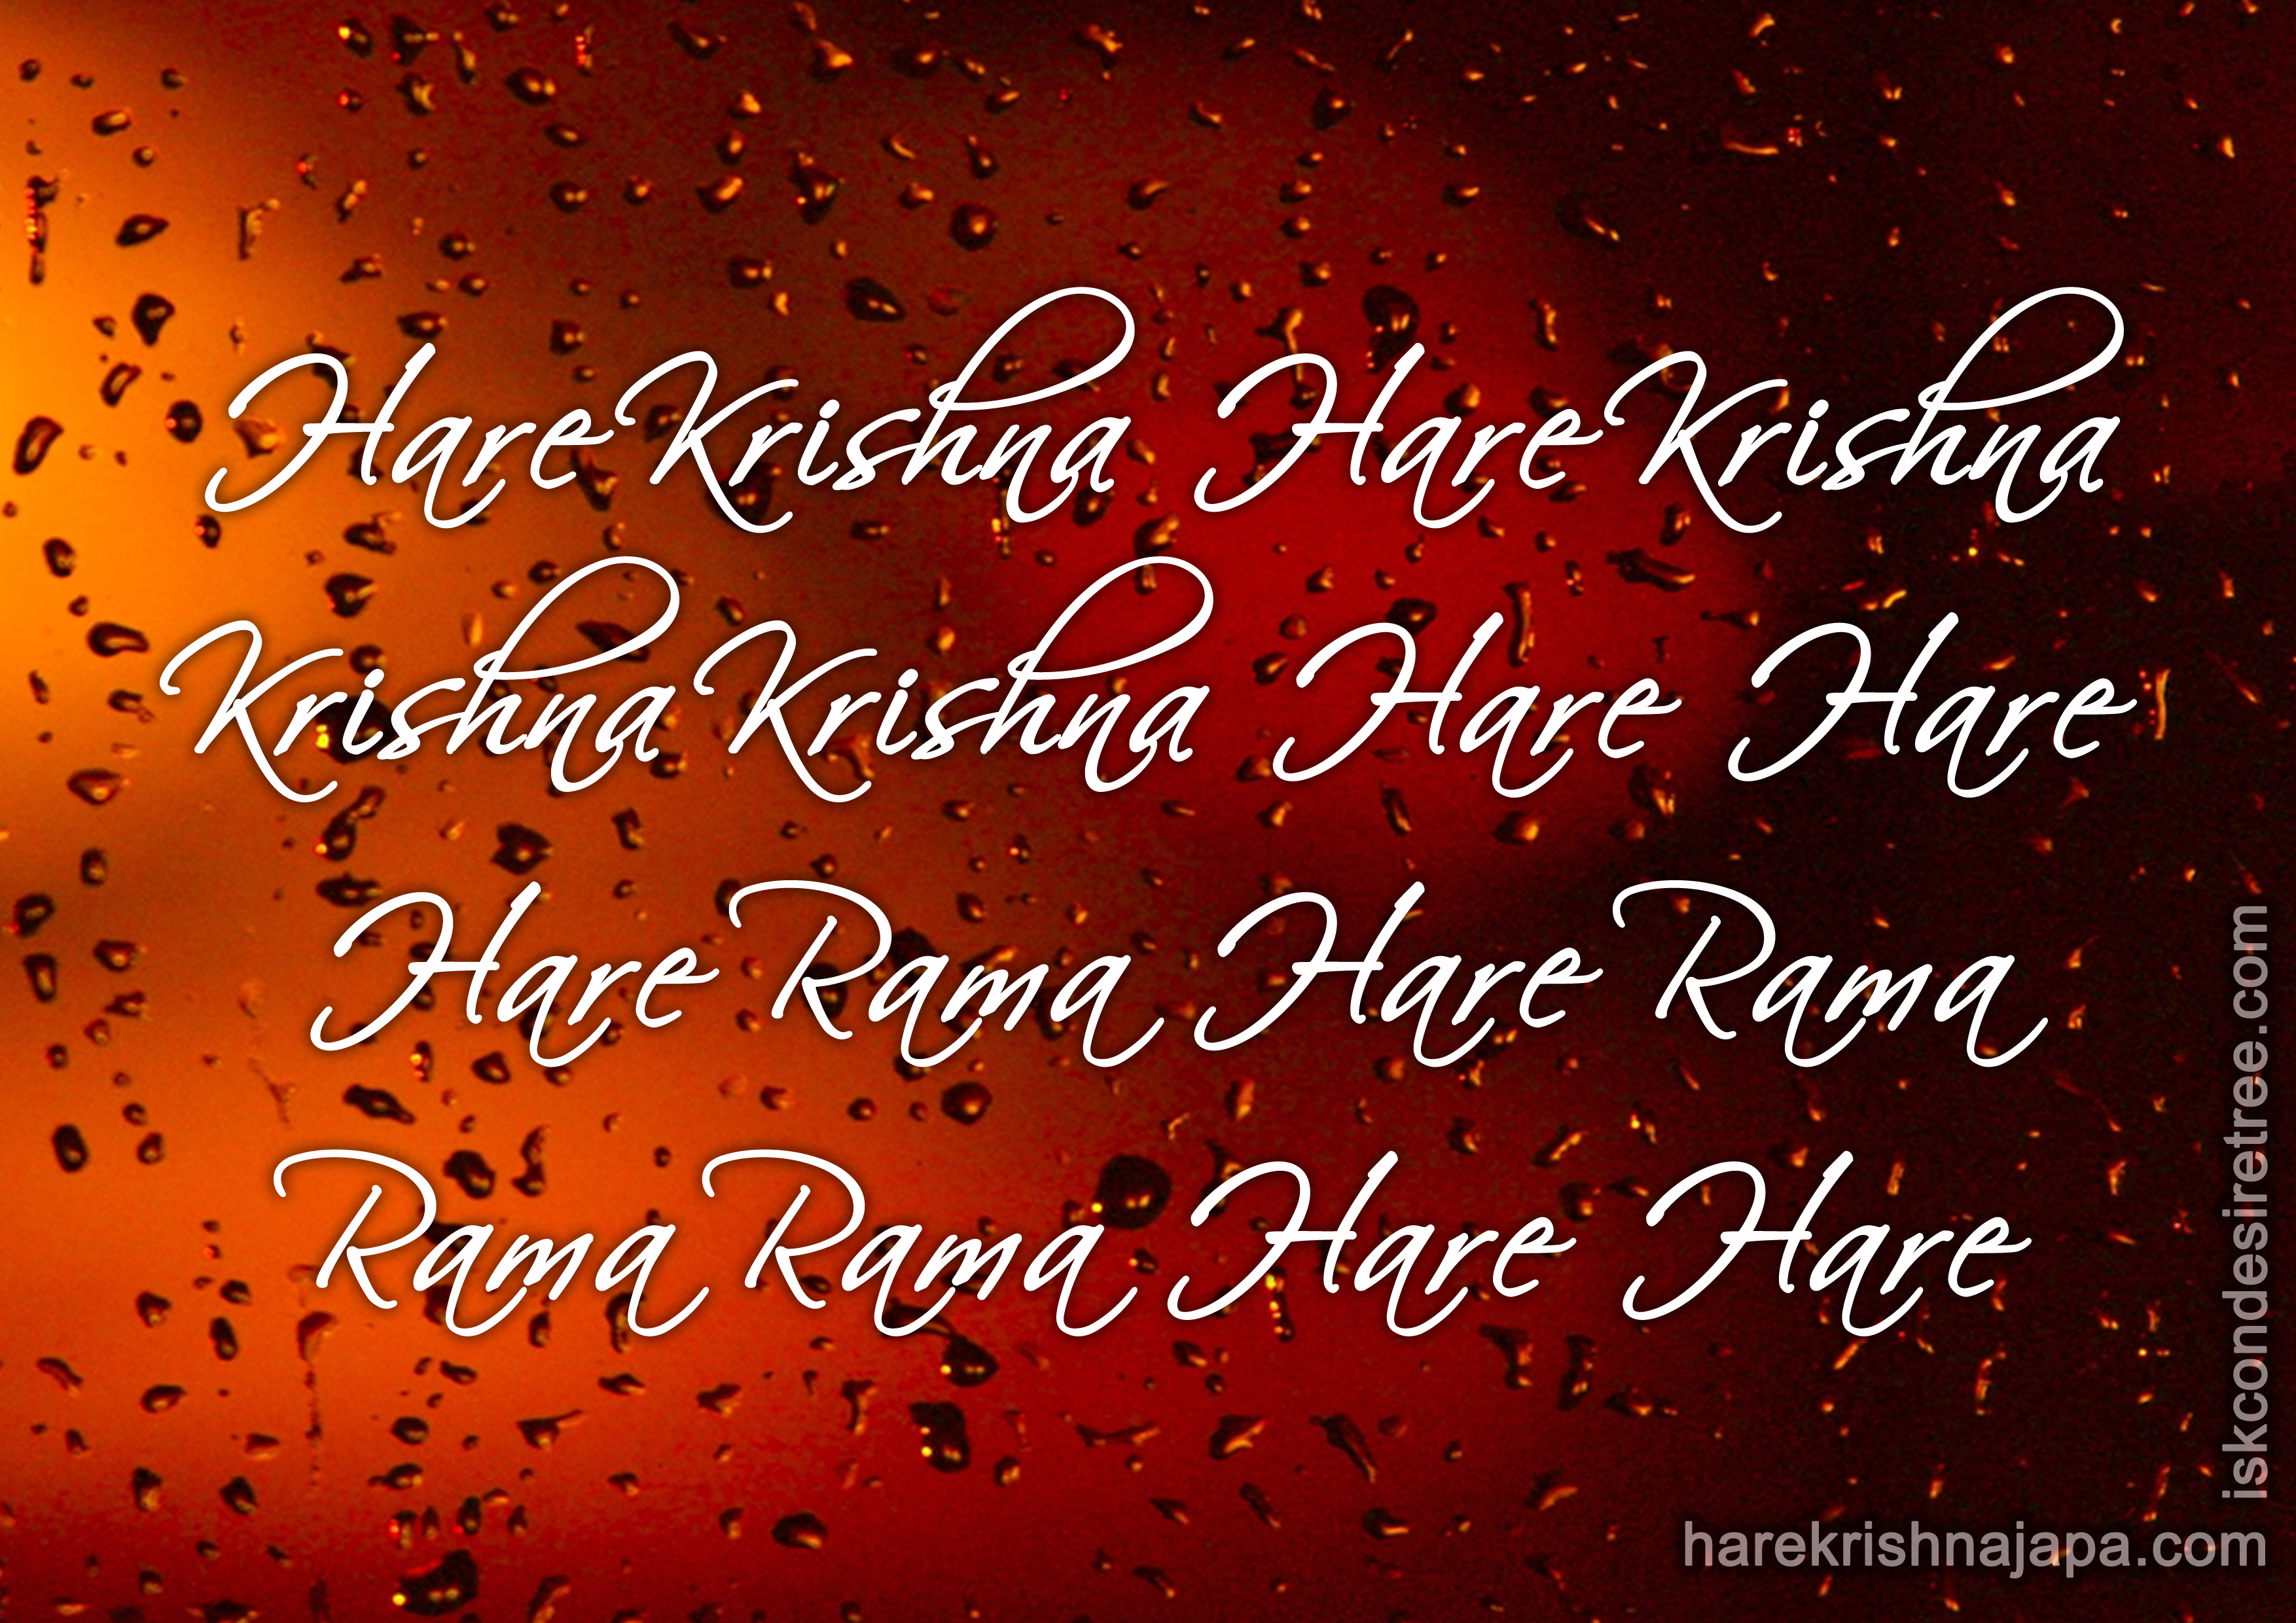 Hare Krishna Hare Krishna
Krishna Krishna Hare Hare
Hare Rama Hare Rama
Rama Rama Hare Hare
iskcondesiretree.com
harekrishnajapa.com